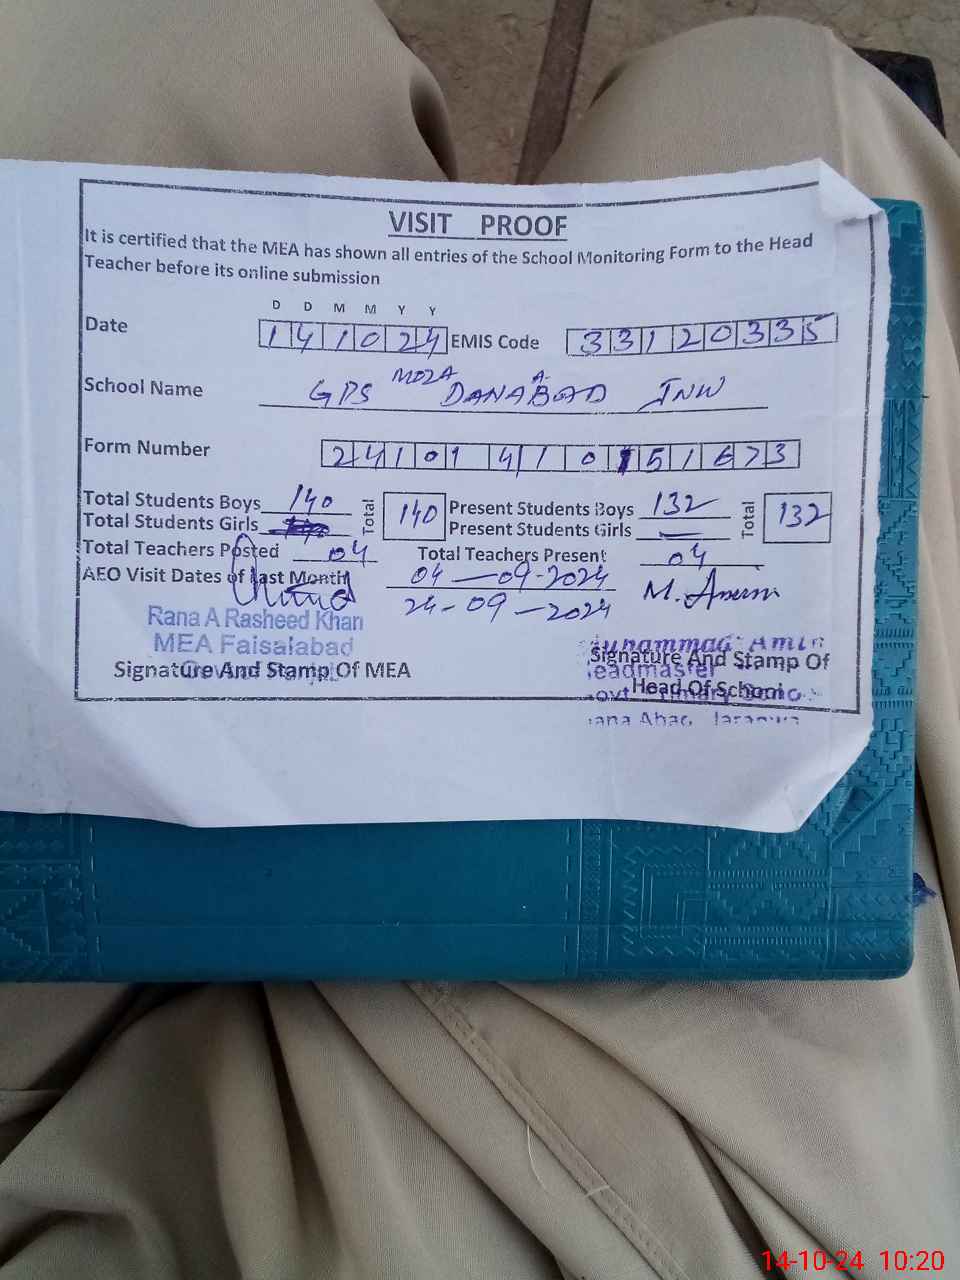 VISIT PROOF
It is certified that the MEA has shown all entries of the School Monitoring Form to the Head
Teacher before its online submission
D D M M Y Y
Date 141024 EMIS Code 33120335
School Name GPS MOZA DANABAD JNW
Form Number 24101410151673
Total Students Boys 140 Total 140 Present Students Boys 132 Total 132
Total Students Girls Present Students Girls —
Total Teachers Posted 04 Total Teachers Present 04
AEO Visit Dates of last Month 04-09-2024 M.
24-09-2024
Rana A Rasheed Khan
MEA Faisalabad
Signature And Stamp Of MEA
Signature And Stamp Of
Head Of School
14-10-24 10:20